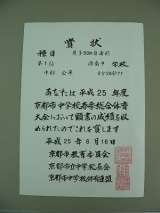 賞状
種目
第1位
あなたは平成25年度
京都市中学校春季総合体育
大会において頭書の成績を収
められたのでこれを賞します
平成25年6月16日
京都市教育委員会
京都市立中学校長会
京都市中学校体育連盟